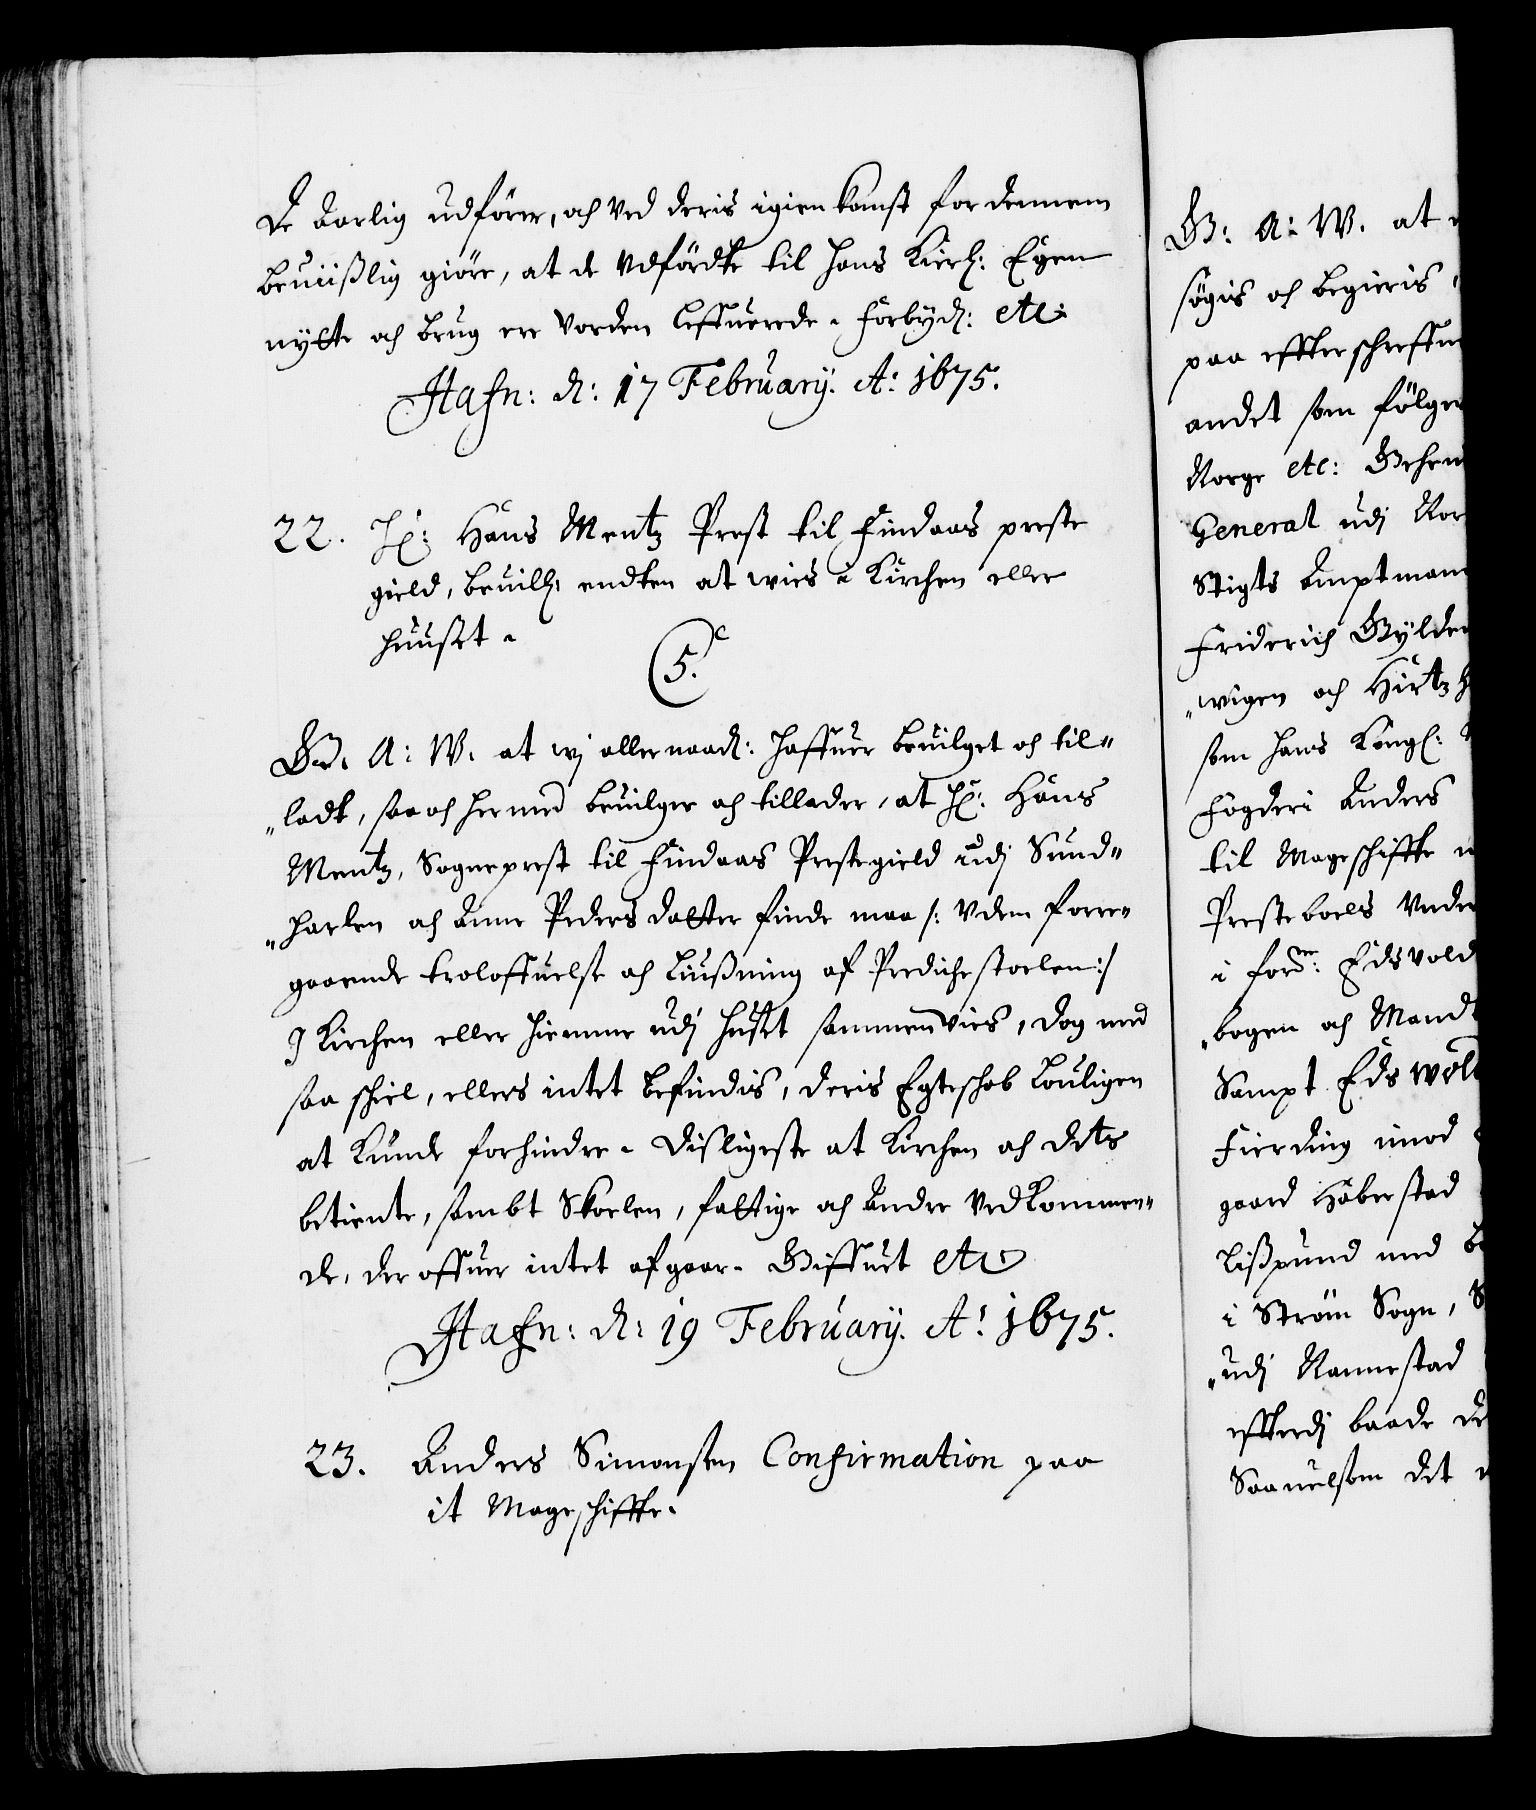 De aarlig udförer, och ved deris igien komst for dennem
beuiißlig giöre, at de udfördte til hans Kierl: Egen
nytte och brug ere vorden leffuerede. Forbyd: etc:
Hafn: d: 17 February. A: 1675.
22. Hr: Hans Mentz Prest til Findaas preste
gield, beuill: endten at wies i Kirchen eller
huuset.
5.
G. A: W. at wj allernaad: haffuer beuilget och til„
„ladt, saa och hermed beuilger och tillader, at Hr: Hans
Mentz, Sogneprest til Findaas Prestegield udj Sund„
„horlen och Anne Peders daatter finde maa /: uden forre„
gaaende troloffuelse och Liußning af Predichestoelen :/
I Kirchen eller hiemme udj huset sammenvies, dog med
saa schiel, ellers intet befindis, deris Egteschab louligen
at kunde forhindre. Disligeste at Kirchen och dets
betiente, sambt Skoelen, fattige och Andre vedkommen„
de, der offuer intet afgaar. Giffuet etc
Hafn: d: 19 February. A: 1675.
23. Anders Simonsen Confirmation paa
it Mageschiffte.
G: A: W. at
søgis och begieris
paa effterschreffu
andet som fölger
Norge etc: Geheim
General udj Nor
Stigts Amptman
Friderich Gylden
„wigen och Hirtzh
som hans Kongl:
Fogderi Anders
til Mageschiffte
Presteboels Under
i forne: Edsvold
„bogen och Mand
Sampt Eds wold
Fierding imod
gaard Haberstad
Lißpund med
i Ström Sogn, S
„udj Rannestad
effterdj baade De
Saauelsom det